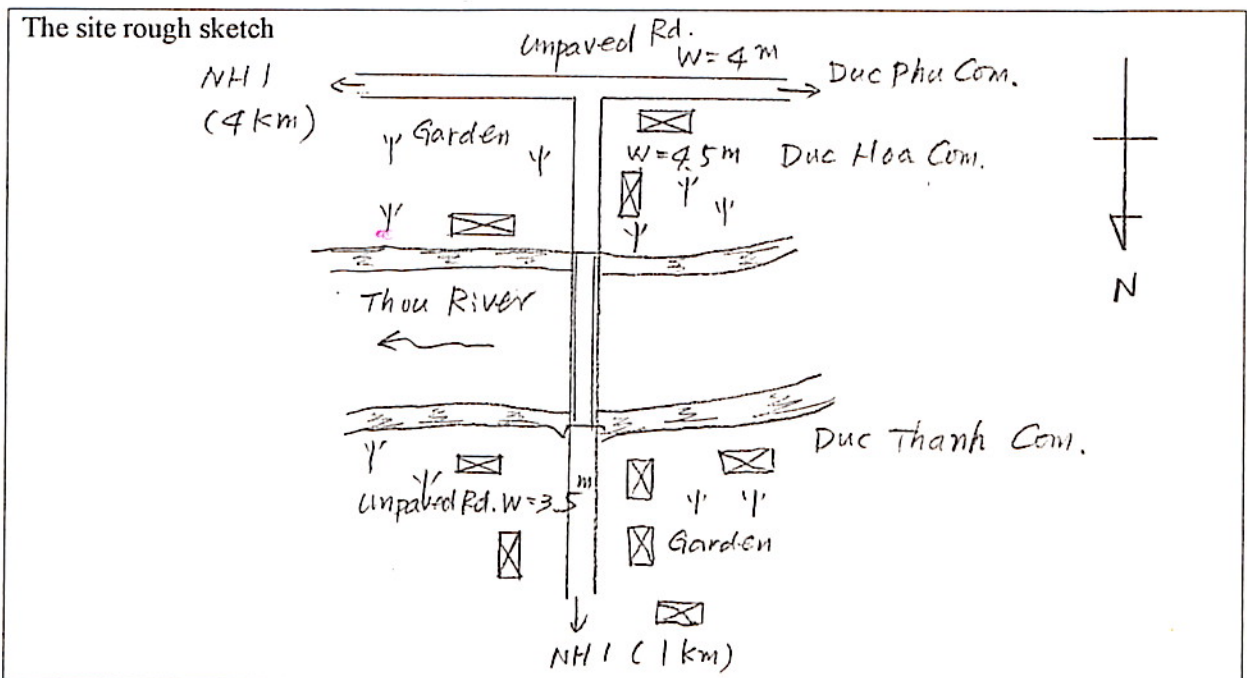 The site rough sketch
Unpaved Rd.
W=4m
NH1
(4km)
Duc Phu Com.
Garden
W=4.5m
Duc Hoa Com.
Thou River
N
Duc Thanh Com.
Unpaved Rd. W=3.5m
Garden
NH1 (1km)